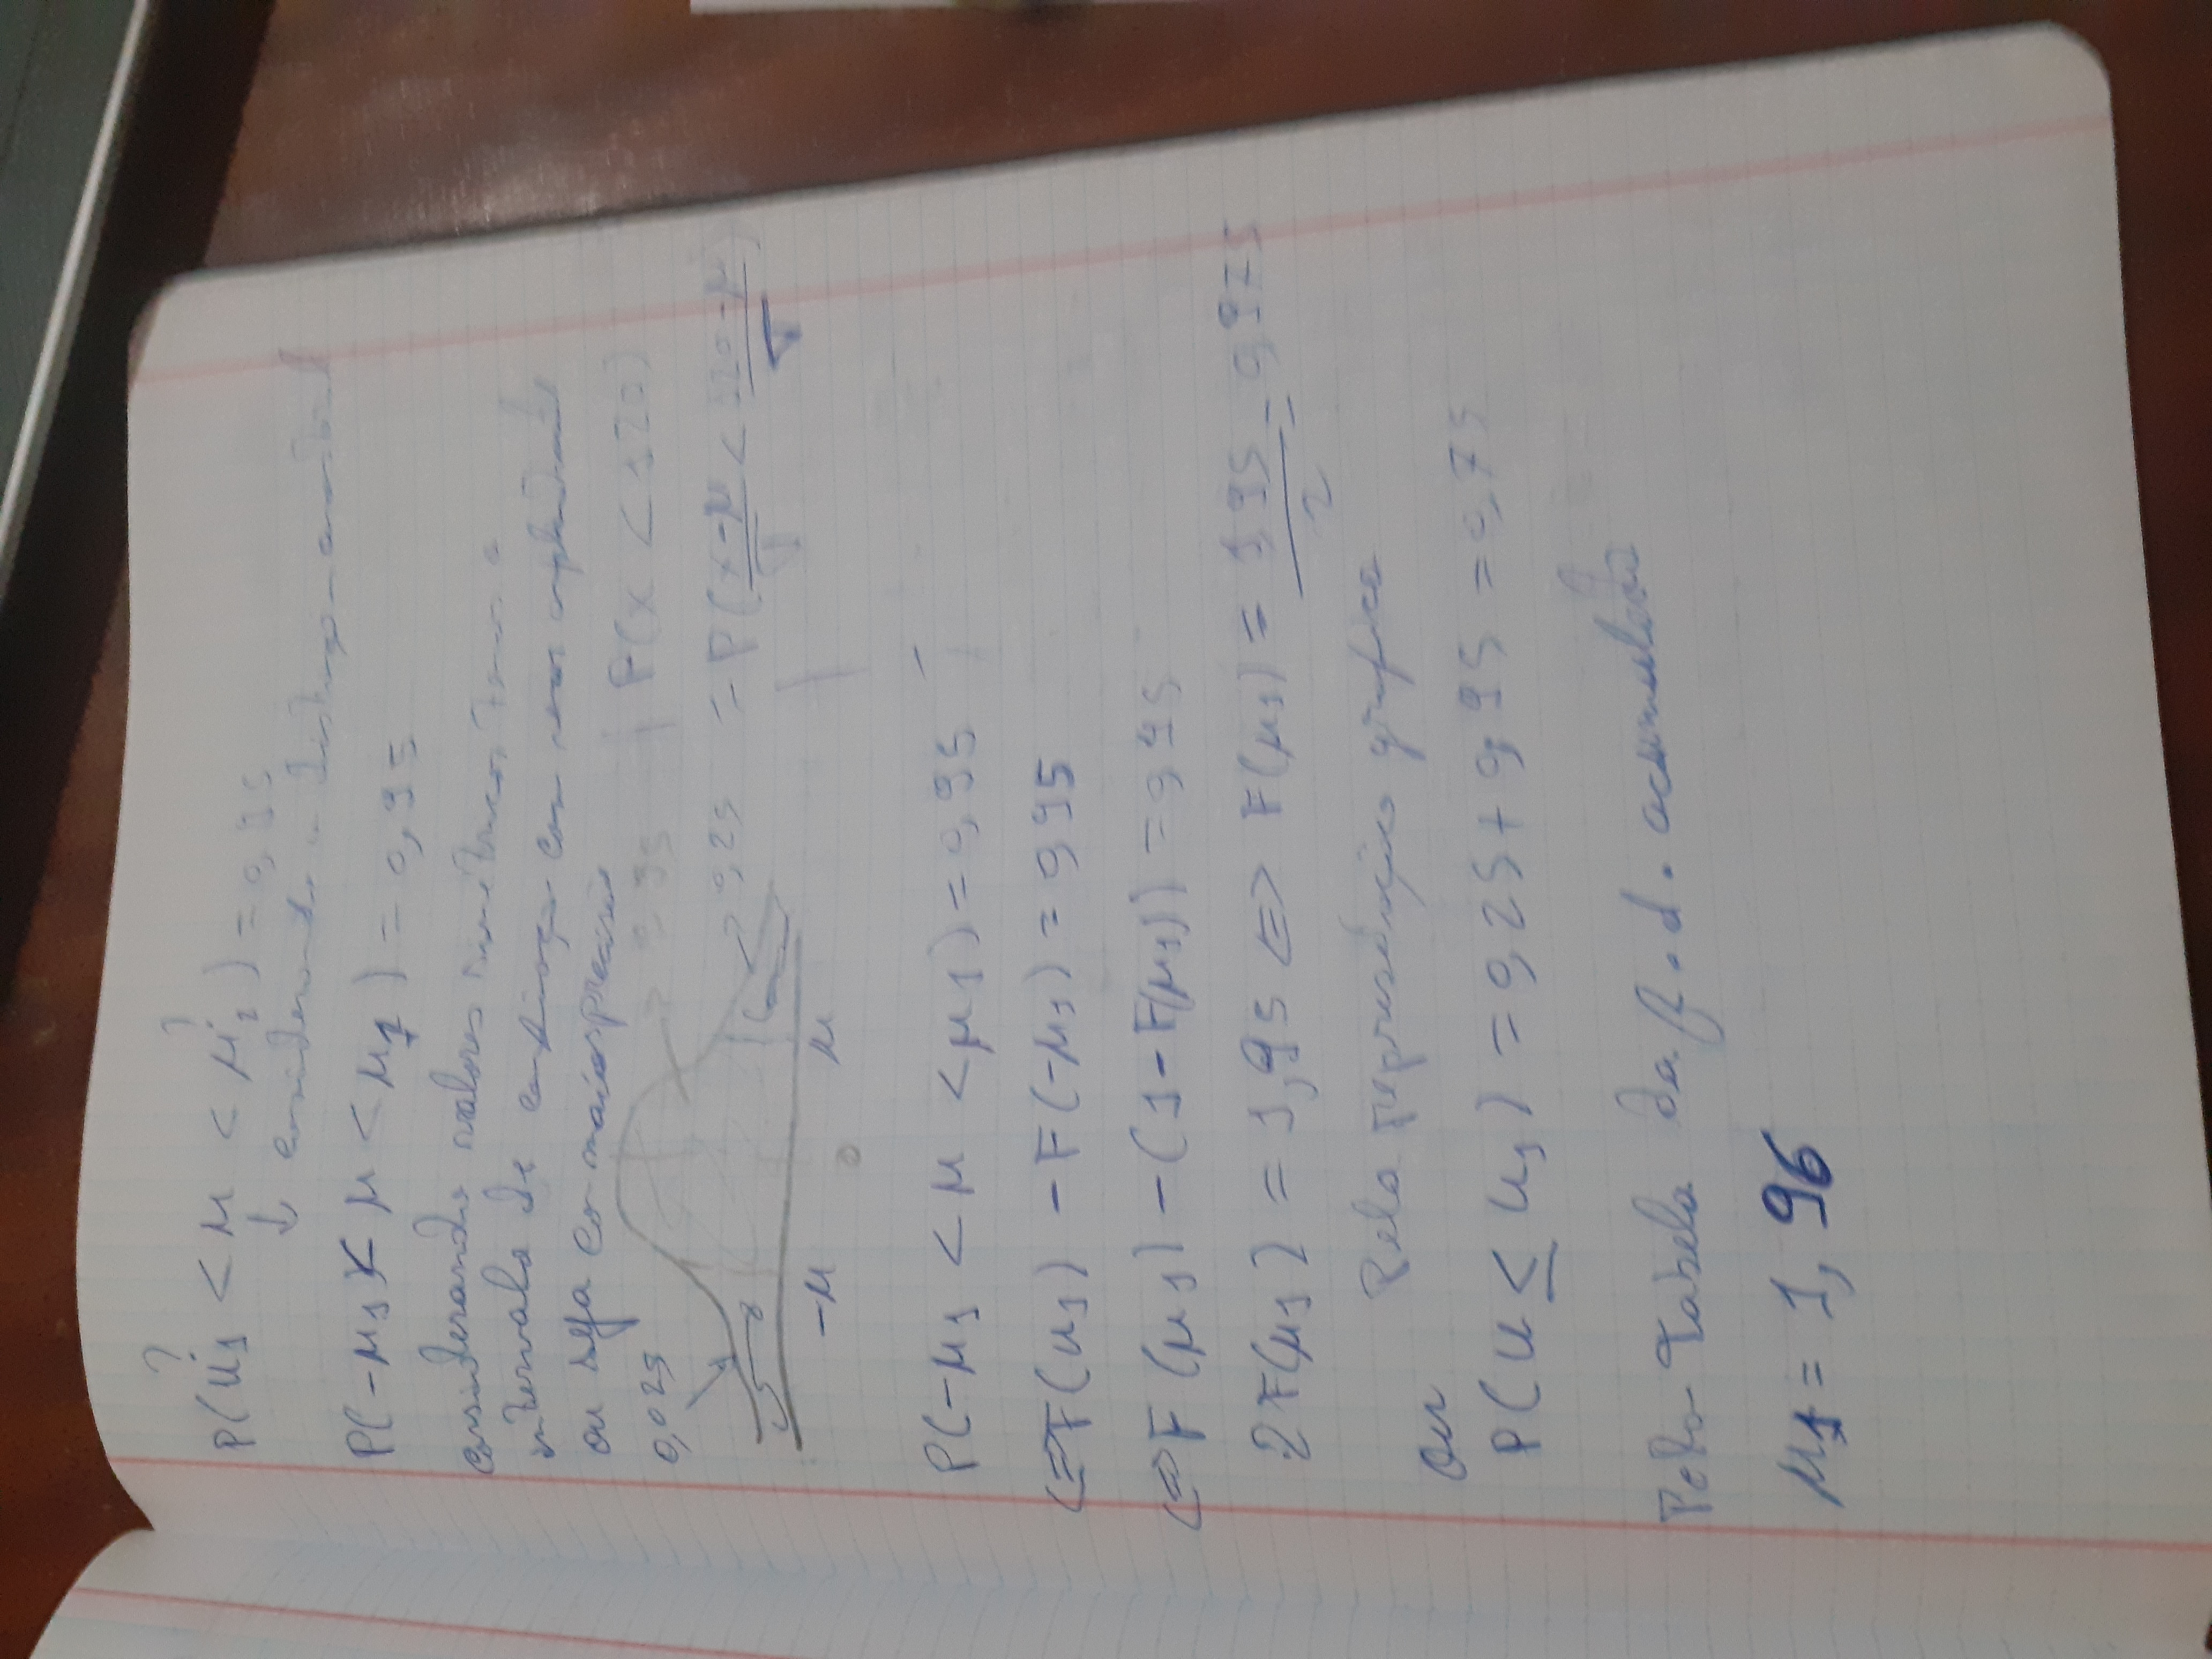 ? ?
P(u₁ < μ < μ₂) = 0,95
↓ considerando a
P(-μ₁ < μ < μ₁) = 0,95
considerando valores simétricos temos o
intervalo de confiança com
ou seja com maior precisão
0,025 0,95 | P(x < 120)
0,25 = P(x-μ/σ < 120-μ/σ)
-μ 0 μ
P(-μ₁ < μ < μ₁) = 0,95
⇔ F(u₁) - F(-μ₁) = 0,95
⇔ F(μ₁) - (1-F(μ₁)) = 0,95
2F(μ₁) = 1,95 ⇔ F(μ₁) = 1,95/2 = 0,975
Pela representação gráfica
ou
P(u ≤ u₁) = 0,25 + 0,95 = 0,75
Pela Tabela da f.d. acumulada
μ₁ = 1,96